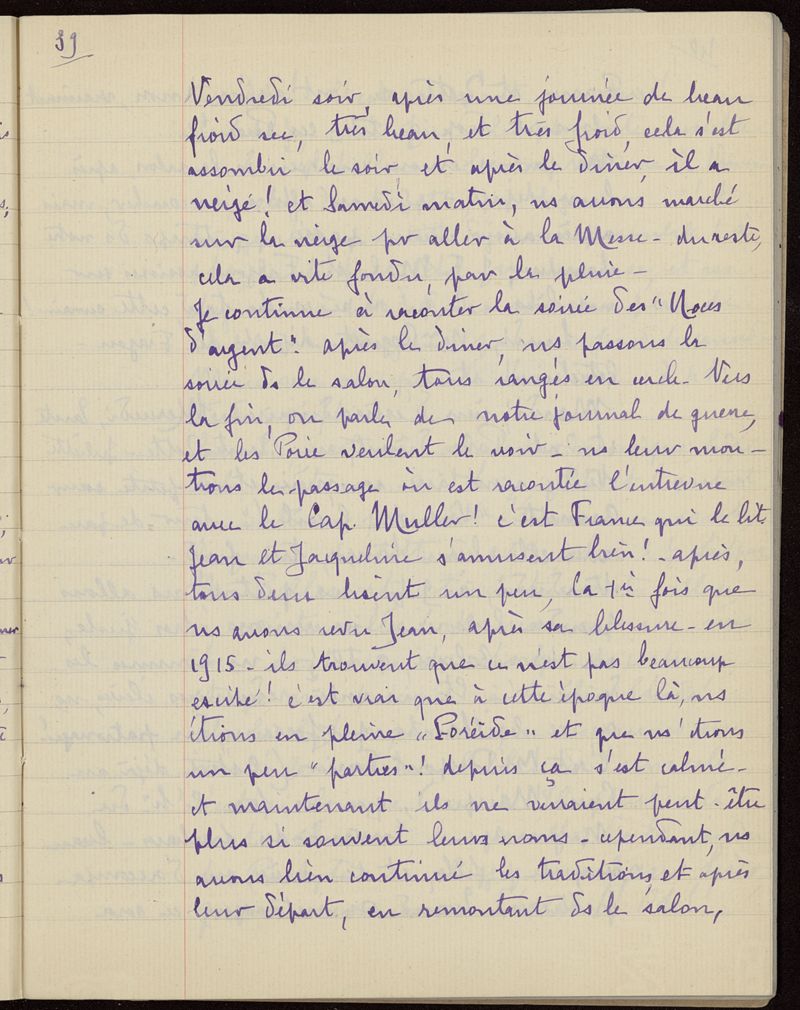 39
Vendredi soir, après une journée de beau
froid sec, très beau, et très froid, cela s'est
assombri le soir, et après le dîner, il a
neigé! et Samedi matin, ns avons marché
sur la neige pr aller à la Messe - du reste,
cela a vite fondu, par la pluie -
Je continue à raconter la soirée des "Noces
d'argent". après le dîner, ns passons la
soirée ds le salon, tous rangés en cercle. Vers
la fin, on parle de notre journal de guerre,
et les veulent le voir - ns leur mon-
trons le passage où est racontée l'entrevue
avec le Cap. Muller! c'est France qui le lit.
Jean et Jacqueline s'amusent bien! - après,
tous deux lisent un peu, la 1ère fois que
ns avons revu Jean, après sa blessure - en
1915 - ils trouvent que ce n'est pas beaucoup
écrit! c'est vrai que à cette époque là, ns
étions en pleine et que ns étions
un peu "parties"! depuis ça s'est calmé -
et maintenant ils ne verraient peut-être
plus si souvent leurs noms - cependant, ns
avons bien continué les traditions, et après
leur départ, en remontant ds le salon,